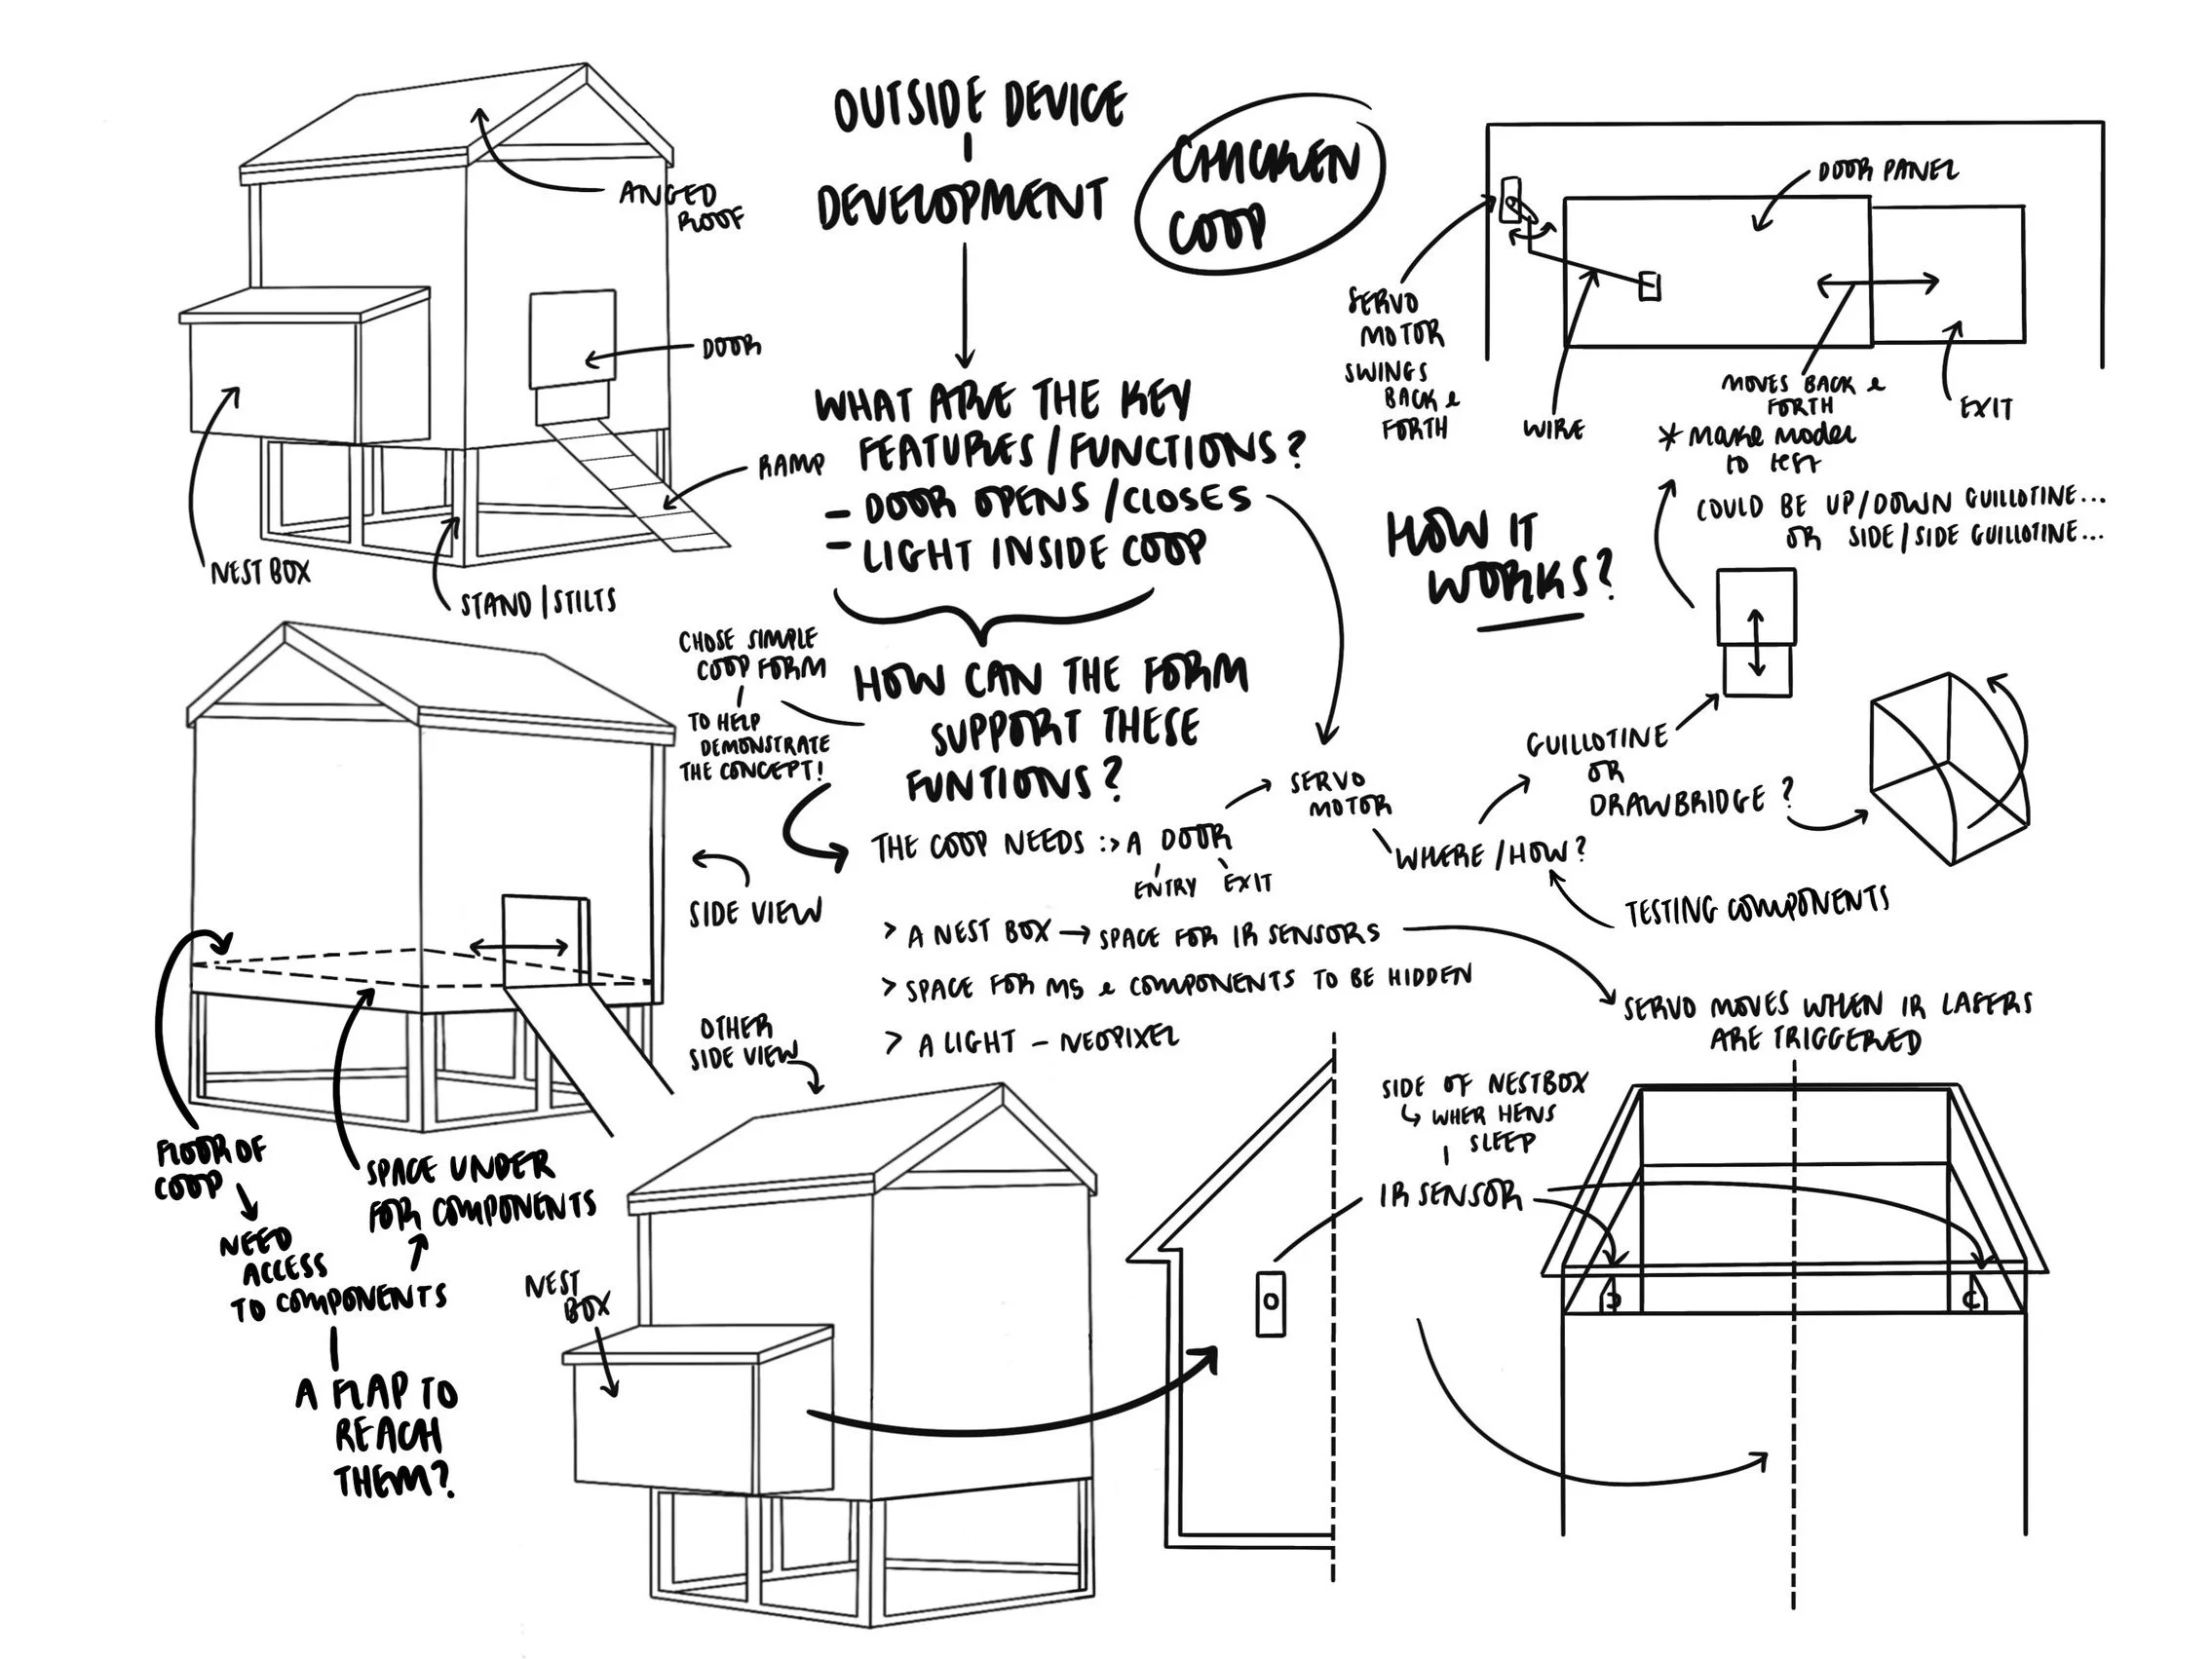 OUTSIDE DEVICE
-
DEVELOPMENT
CHICKEN
COOP
ANGED
ROOF
DOOR
RAMP
NEST BOX
STAND/STILTS
WHAT ARE THE KEY
FEATURES/FUNCTIONS?
- DOOR OPENS/CLOSES
- LIGHT INSIDE COOP
CHOSE SIMPLE
COOP FORM
TO HELP
DEMONSTRATE
THE CONCEPT!
HOW CAN THE FORM
SUPPORT THESE
FUNTIONS?
THE COOP NEEDS :> A DOOR
ENTRY EXIT
> A NEST BOX → SPACE FOR IR SENSORS
> SPACE FOR MS & COMPONENTS TO BE HIDDEN
> A LIGHT - NEOPIXEL
SERVO
MOTOR
WHERE/HOW?
TESTING COMPONENTS
GUILLOTINE
OR
DRAWBRIDGE?
HOW IT
WORKS?
DOOR PANEL
SERVO
MOTOR
SWINGS
BACK &
FORTH
WIRE
MOVES BACK &
FORTH
EXIT
* make model
to test
COULD BE UP/DOWN GUILLOTINE...
OR SIDE/SIDE GUILLOTINE...
SERVO MOVES WHEN IR LASERS
ARE TRIGGERED
SIDE VIEW
OTHER
SIDE VIEW
FLOOR OF
COOP
NEED
ACCESS
TO COMPONENTS
SPACE UNDER
FOR COMPONENTS
A FLAP TO
REACH
THEM?
NEST
BOX
SIDE OF NESTBOX
↳ WHER HENS
SLEEP
IR SENSOR